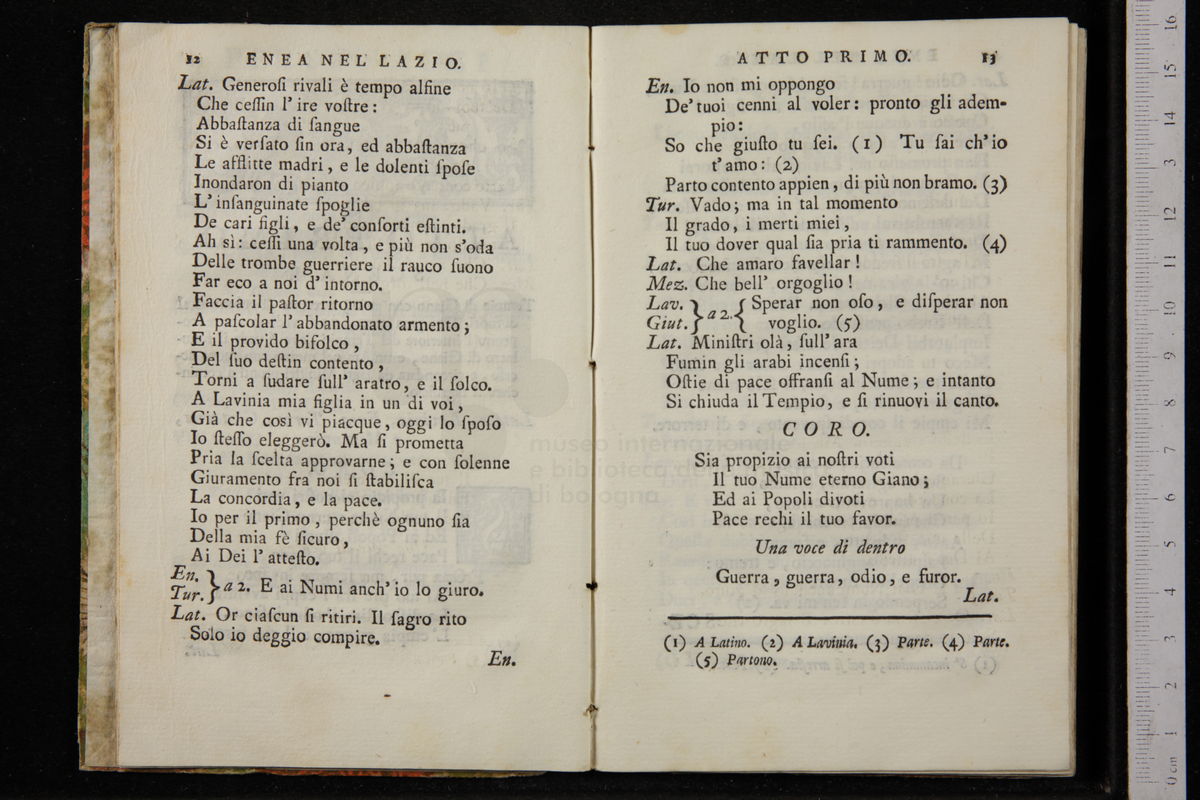 12 ENEA NEL LAZIO.
Lat. Generoſi rivali è tempo alfine
Che ceſſin l' ire voſtre:
Abbaſtanza di ſangue
Si è verſato ſin ora, ed abbaſtanza
Le afflitte madri, e le dolenti ſpoſe
Inondaron di pianto
L' inſanguinate ſpoglie
De cari figli, e de' conſorti eſtinti.
Ah sì: ceſſi una volta, e più non s'oda
Delle trombe guerriere il rauco ſuono
Far eco a noi d' intorno.
Faccia il paſtor ritorno
A paſcolar l' abbandonato armento;
E il provido bifolco,
Del ſuo deſtin contento,
Torni a ſudare ſull' aratro, e il ſolco.
A Lavinia mia figlia in un di voi,
Già che così vi piacque, oggi lo ſpoſo
Io ſteſſo eleggerò. Ma ſi prometta
Pria la ſcelta approvarne; e con ſolenne
Giuramento fra noi ſi ſtabiliſca
La concordia, e la pace.
Io per il primo, perchè ognuno ſia
Della mia fè ſicuro,
Ai Dei l' atteſto.
En.
Tur. } a 2. E ai Numi anch' io lo giuro.
Lat. Or ciaſcun ſi ritiri. Il ſagro rito
Solo io deggio compire.
En.
ATTO PRIMO. 13
En. Io non mi oppongo
De' tuoi cenni al voler: pronto gli adem-
pio:
So che giuſto tu ſei. (1) Tu ſai ch' io
t' amo: (2)
Parto contento appien, di più non bramo. (3)
Tur. Vado; ma in tal momento
Il grado, i merti miei,
Il tuo dover qual ſia pria ti rammento. (4)
Lat. Che amaro favellar!
Mez. Che bell' orgoglio!
Lav. } a 2. { Sperar non oſo, e diſperar non
Giut. voglio. (5)
Lat. Miniſtri olà, ſull' ara
Fumin gli arabi incenſi;
Oſtie di pace offranſi al Nume; e intanto
Si chiuda il Tempio, e ſi rinuovi il canto.
CORO.
Sia propizio ai noſtri voti
Il tuo Nume eterno Giano;
Ed ai Popoli divoti
Pace rechi il tuo favor.
Una voce di dentro
Guerra, guerra, odio, e furor.
Lat.
(1) A Latino. (2) A Lavinia. (3) Parte. (4) Parte.
(5) Partono.
museo internazionale
e biblioteca della
di bologna
0 cm 1 2 3 4 5 6 7 8 9 10 11 12 13 14 15 16